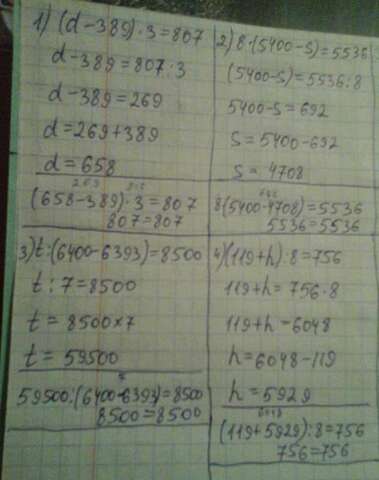 1) (d-389)·3=807
d-389=807:3
d-389=269
d=269+389
d=658
269
(658-389)·3=807
807=807
2) 8·(5400-S)=5536
(5400-S)=5536:8
5400-S=692
S=5400-692
S=4708
692
8(5400-4708)=5536
5536=5536
3) t:(6400-6393)=8500
t:7=8500
t=8500×7
t=59500
7
59500:(6400-6393)=8500
8500=8500
4) (119+h):8=756
119+h=756·8
119+h=6048
h=6048-119
h=5929
6048
(119+5929):8=756
756=756